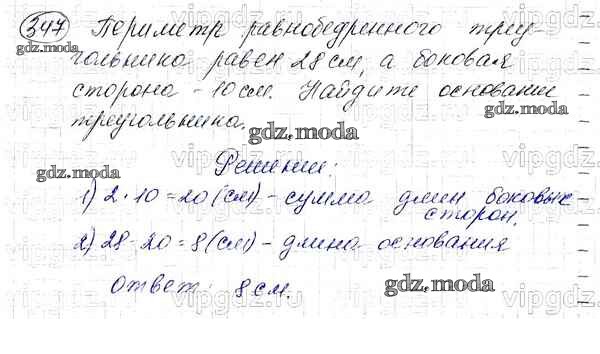 347 Периметр равнобедренного треу-
гольника равен 28 см, а боковая
сторона - 10 см. Найдите основание
треугольника.
Решение:
1) 2 · 10 = 20 (см) - сумма длин боковых
сторон.
2) 28 - 20 = 8 (см) - длина основания
Ответ: 8 см.
gdz.moda
gdz.moda
gdz.moda
gdz.moda
gdz.moda
vipgdz.com
vipgdz.com
vipgdz.com
vipgdz.com